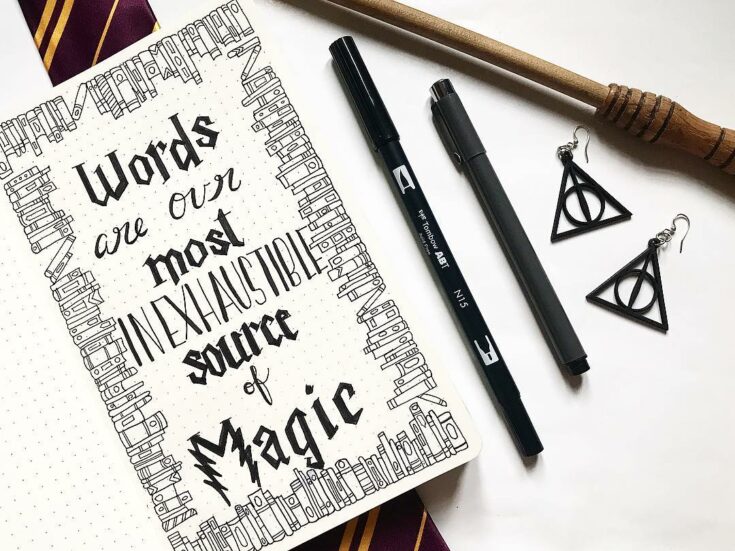 Words
are our
most
INEXHAUSTIBLE
source
of
Magic
Tombow ABT
N15